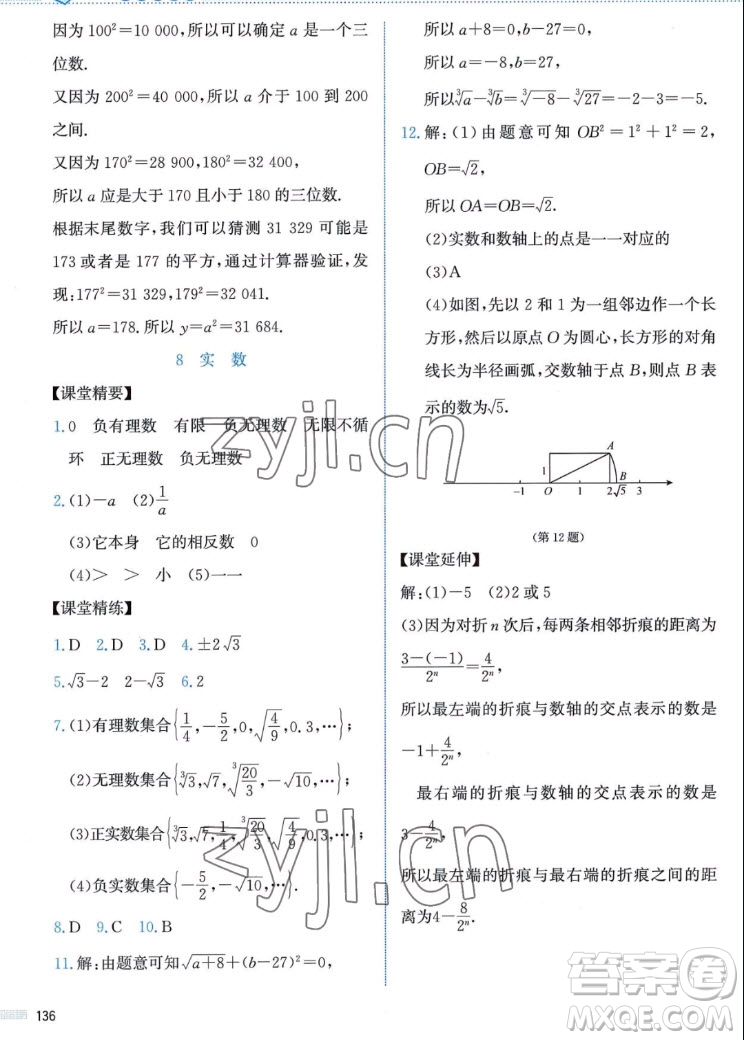 因为100²=10 000,所以可以确定 a 是一个三
位数.
又因为200²=40 000,所以 a 介于 100 到 200
之间.
又因为170²=28 900,180²=32 400,
所以 a 应是大于 170 且小于 180 的三位数.
根据末尾数字,我们可以猜测 31 329 可能是
173 或者是 177 的平方,通过计算器验证,发
现:177²=31 329,179²=32 041.
所以 a=178.所以 y=a²=31 684.
8 实 数
【课堂精要】
1.0 负有理数 有限 负无理数 无限不循
环 正无理数 负无理数
2.(1)-a (2)1/a
(3)它本身 它的相反数 0
(4)> > 小 (5)一一
【课堂精练】
1.D 2.D 3.D 4.±2√3
5.√3-2 2-√3 6.2
7.(1)有理数集合{1/4,-5/2,0,√(4/9),0.3,…};
(2)无理数集合{∛3,√7,∛(20/3),-√10,…};
(3)正实数集合{∛3,√7,1/4,∛(20/3),√(4/9),0.3,…};
(4)负实数集合{-5/2,-√10,…}.
8.D 9.C 10.B
11.解:由题意可知√(a+8)+(b-27)²=0,
136
所以 a+8=0,b-27=0,
所以 a=-8,b=27,
所以∛a-∛b=∛-8-∛27=-2-3=-5.
12.解:(1)由题意可知 OB²=1²+1²=2,
OB=√2,
所以 OA=OB=√2.
(2)实数和数轴上的点是一一对应的
(3)A
(4)如图,先以 2 和 1 为一组邻边作一个长
方形,然后以原点 O 为圆心,长方形的对角
线长为半径画弧,交数轴于点 B,则点 B 表
示的数为√5.
A
1
B
-1 O 1 2 √5 3
(第 12 题)
【课堂延伸】
解:(1)-5 (2)2 或 5
(3)因为对折 n 次后,每两条相邻折痕的距离为
(3-(-1))/2ⁿ=4/2ⁿ,
所以最左端的折痕与数轴的交点表示的数是
-1+4/2ⁿ,
最右端的折痕与数轴的交点表示的数是
3-4/2ⁿ,
所以最左端的折痕与最右端的折痕之间的距
离为4-8/2ⁿ.
zyjl.cn
zyjl.cn
答案圈
MXQE.COM